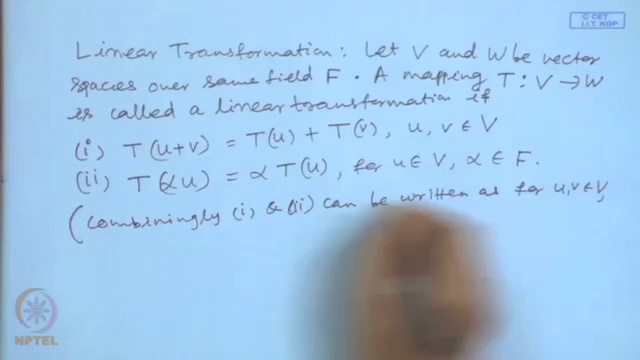 © CET
I.I.T. KGP
Linear Transformation: Let V and W be vector
spaces over same field F. A mapping T: V → W
is called a linear transformation if
(i) T(u+v) = T(u) + T(v), u, v ∈ V
(ii) T(αu) = α T(u), for u ∈ V, α ∈ F.
(Combiningly (i) & (ii) can be written as for u, v ∈ V,
NPTEL